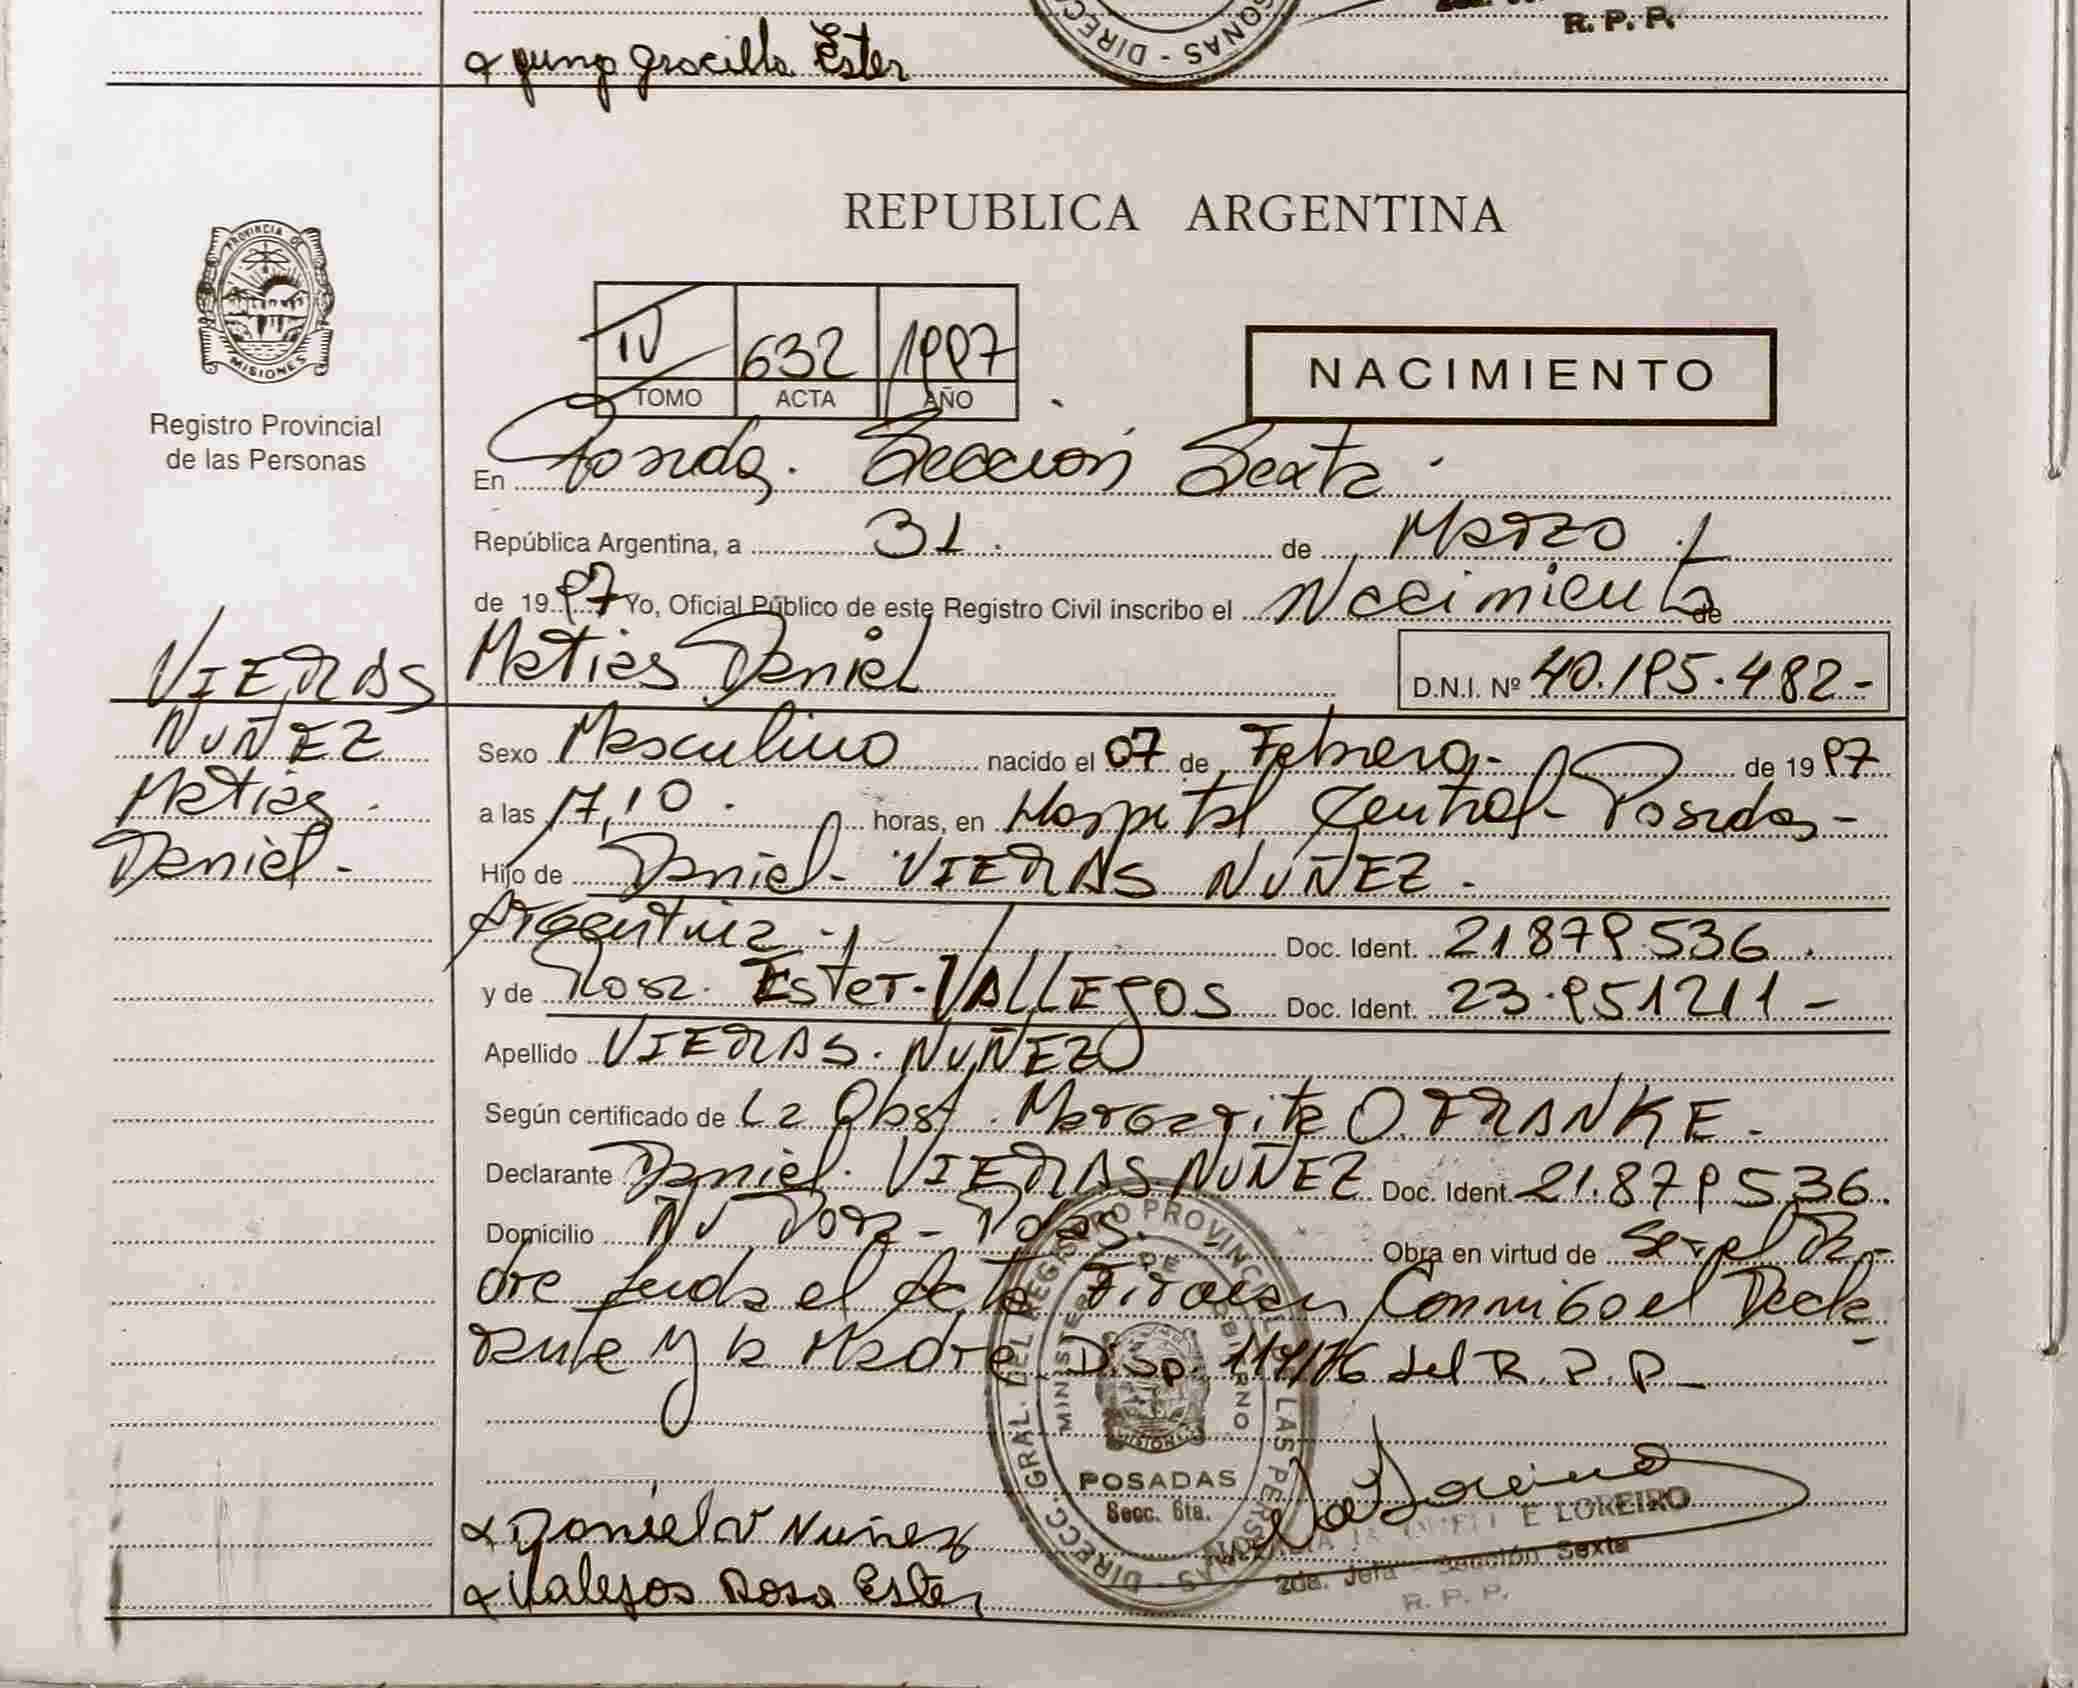 R. P. P.
DIREC
SONAS
Graciela Ester
REPUBLICA ARGENTINA
PROVINCIA DE
MISIONES
Registro Provincial
de las Personas
IV 632 1997
TOMO ACTA AÑO
NACIMIENTO
En Posadas. Sección Sexta.
República Argentina, a 31. de Marzo
de 1997 Yo, Oficial Público de este Registro Civil inscribo el Nacimiento de
Matias Daniel D.N.I. Nº 40.195.482-
VIERAS
NUÑEZ
Matias
Daniel-
Sexo Masculino nacido el 07 de Febrero- de 1997
a las 17,10. horas, en Hospital Central- Posadas-
Hijo de Daniel- VIERAS NUÑEZ.
Argentina- Doc. Ident. 21879.536.
y de Rosa Ester- VALLEJOS Doc. Ident. 23.951211-
Apellido VIERAS. NUÑEZ
Según certificado de La Obst. Margarita O. FRANKE-
Declarante Daniel. VIERAS NUÑEZ Doc. Ident. 21.879536.
Domicilio Obra en virtud de Ser el Pa-
dre Leída el Acta Firman Conmigo el Decla
rante y la Madre Disp. 114/76 del R.P.P-
DIRECC. GRAL. DEL REGISTRO PROVINCIAL DE LAS PERSONAS
MINISTERIO DE GOBIERNO
MISIONES
POSADAS
Secc. 6ta.
Daniel V Nuñez
Valejos Rosa Ester
E LOREIRO
2da. Jefa - Sección Sexta
R. P. P.